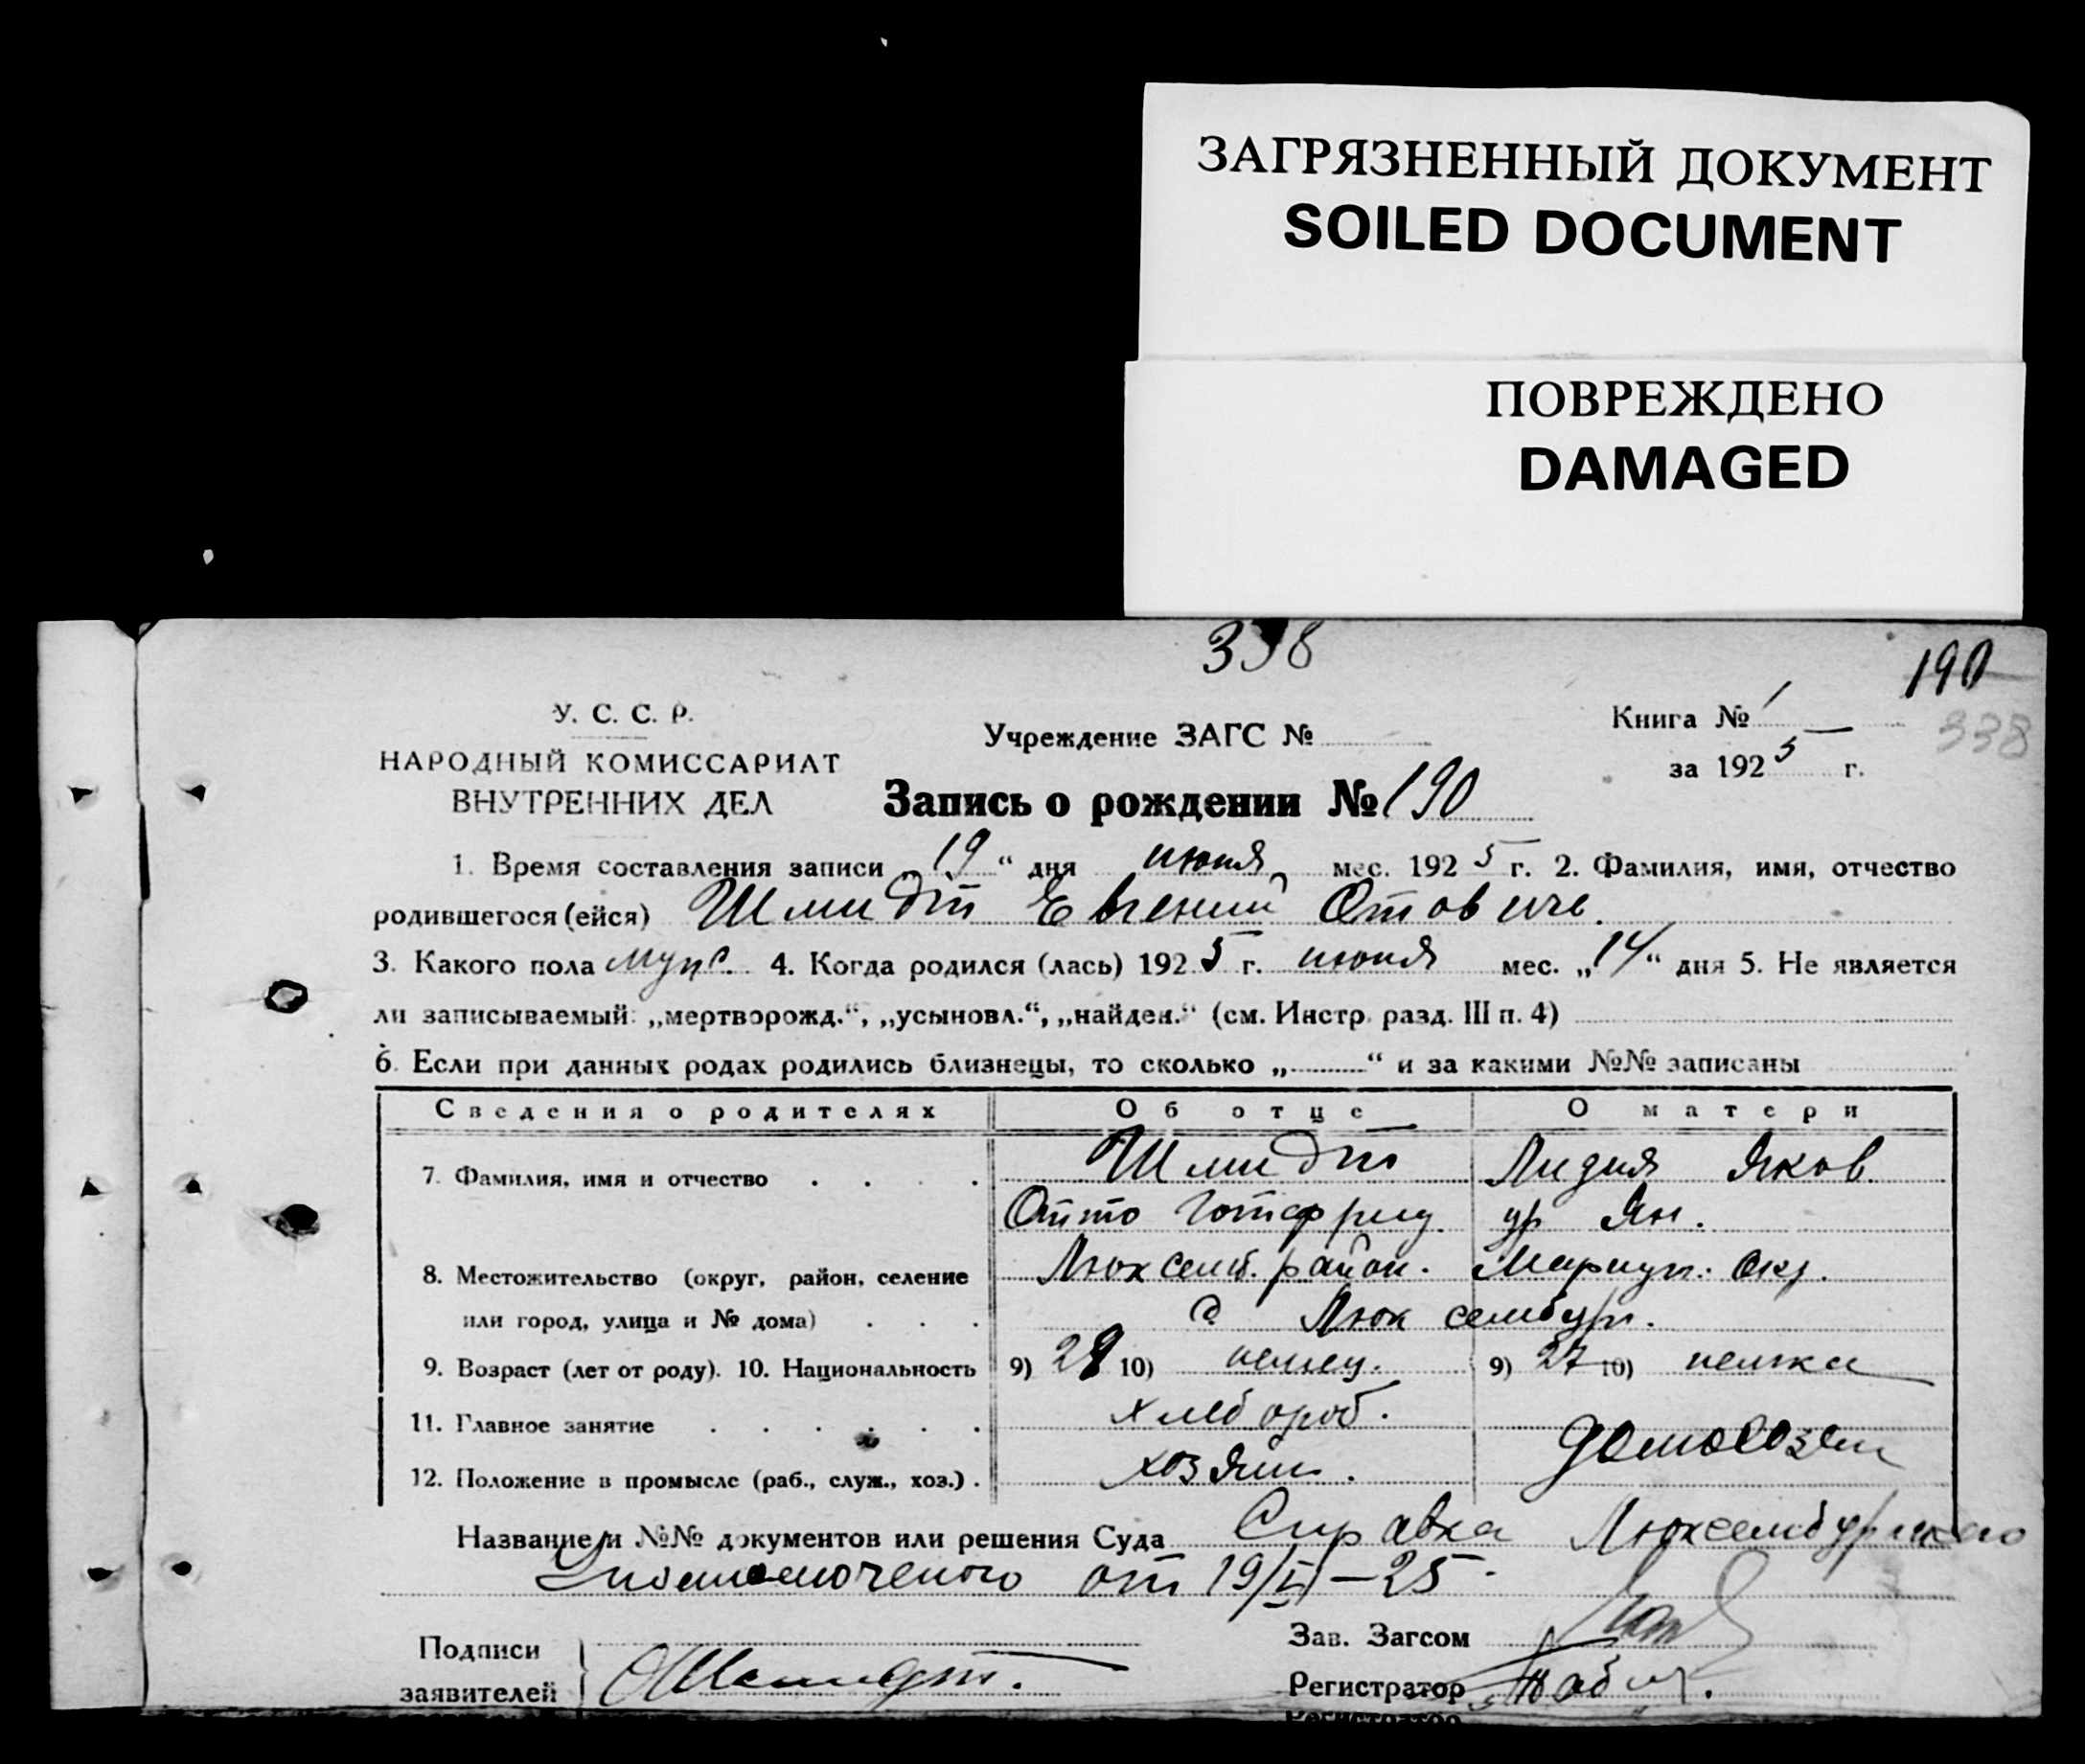 ЗАГРЯЗНЕННЫЙ ДОКУМЕНТ
SOILED DOCUMENT
ПОВРЕЖДЕНО
DAMAGED
338
190
338
У. С. С. Р.
НАРОДНЫЙ КОМИССАРИАТ
ВНУТРЕННИХ ДЕЛ
Учреждение ЗАГС №
Книга № 1
за 1925 г.
Запись о рождении № 190
1. Время составления записи „19“ дня июня мес. 1925 г. 2. Фамилия, имя, отчество
родившегося (ейся) Шмидт Евгений Отович.
3. Какого пола муж. 4. Когда родился (лась) 1925 г. июня мес. „14“ дня 5. Не является
ли записываемый: „мертворожд.“, „усыновл.“, „найден.“ (см. Инстр. разд. III п. 4)
6. Если при данных родах родились близнецы, то сколько „ “ и за какими №№ записаны
Сведения о родителях Об отце О матери
7. Фамилия, имя и отчество Шмидт Лидия Яков.
Отто Готфрид. ур Ян.
8. Местожительство (округ, район, селение Люксемб. район. Мариуп. Окр.
или город, улица и № дома) с. Люксембург.
9. Возраст (лет от роду). 10. Национальность 9) 29 10) немец. 9) 27 10) немка
11. Главное занятие хлебороб.
12. Положение в промысле (раб., служ., хоз.) хозяин. домохозяй
Название и №№ документов или решения Суда Справка Люксембургского
Уполномоченого от 19/VI–25.
Подписи
заявителей ОШмидт.
Зав. Загсом
Регистратор
Регистратор